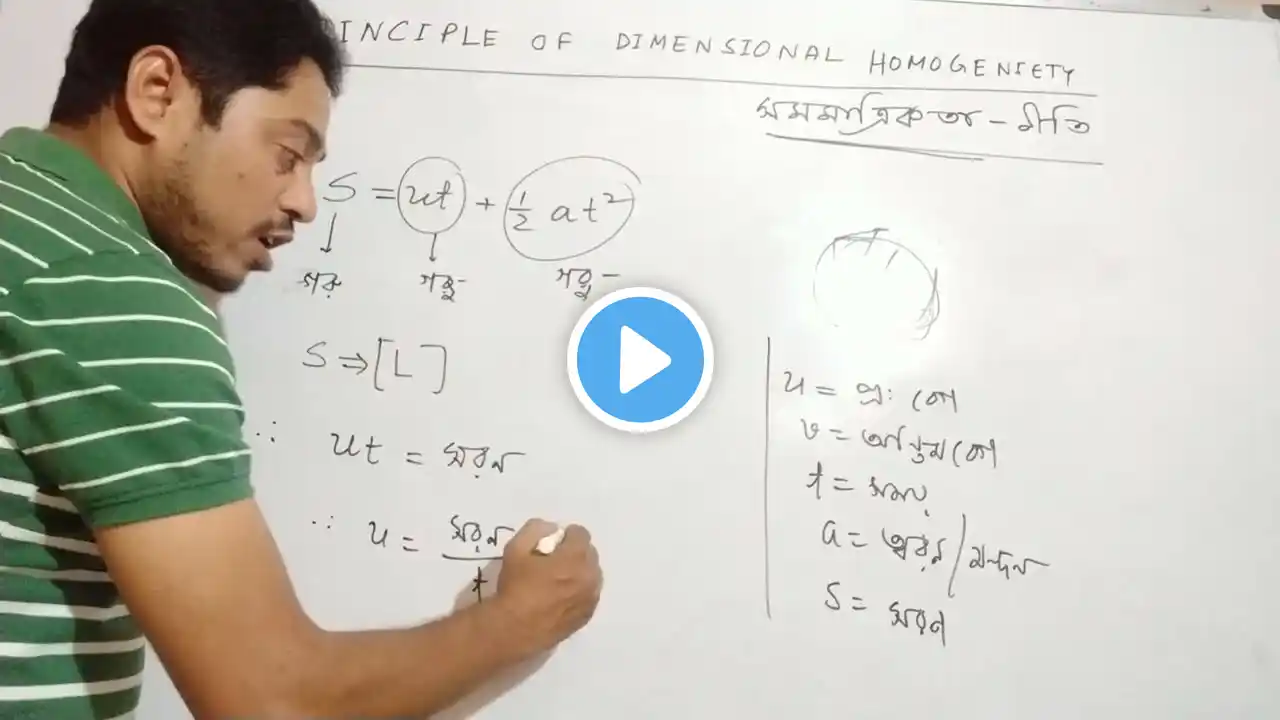 INCIPLE OF DIMENSIONAL HOMOGENIETY
সমমাত্রিকতা - নীতি
S = ut + 1/2 at²
সরণ
S ⇒ [L]
∴ ut = সরণ
∴ u = সরণ / t
u = প্রঃ বেগ
v = অন্তিম বেগ
t = সময়
a = ত্বরণ / মন্দন
S = সরণ